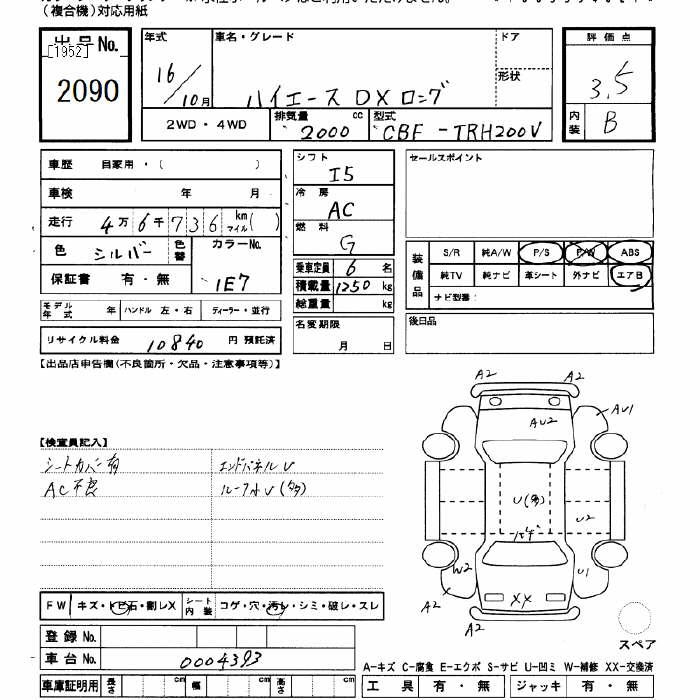 （複合機）対応用紙
出品No.
[1952]
2090
年式
16/10月
車名・グレード
ハイエース DX ロング
ドア
形状
2WD・4WD
排気量 cc
2000
型式
CBF-TRH200V
評価点
3.5
内装
B
車歴 自家用・（ ）
車検 年 月
走行 4万6千736 km マイル( )
色 シルバー 色替
カラーNo.
1E7
保証書 有・無
モデル年式 年 ハンドル 左・右 ディーラー・並行
リサイクル料金 10840 円 預託済
シフト
I5
冷房
AC
燃料
G
乗車定員 6 名
積載量 1250 kg
総重量 kg
名変期限
月 日
セールスポイント
装備品
S/R 純A/W P/S P/W ABS
純TV 純ナビ 革シート 外ナビ エアB
ナビ型番：
後日品
【出品店申告欄(不良箇所・欠品・注意事項等)】
【検査員記入】
シートカバー有
エンドパネルU
AC不良
ルーフ小U(多)
FW キズ・トビ石・割レX
シート内装 コゲ・穴・汚レ・シミ・破レ・スレ
登録No.
車台No. 0004393
車庫証明用 長さ cm 幅 cm 高さ cm
A2 A2
AU1
AU2
U(多)
U2
W2
U1
XX
A2
A2
スペア
A-キズ C-腐食 E-エクボ S-サビ U-凹ミ W-補修 XX-交換済
工具 有・無 ジャッキ 有・無